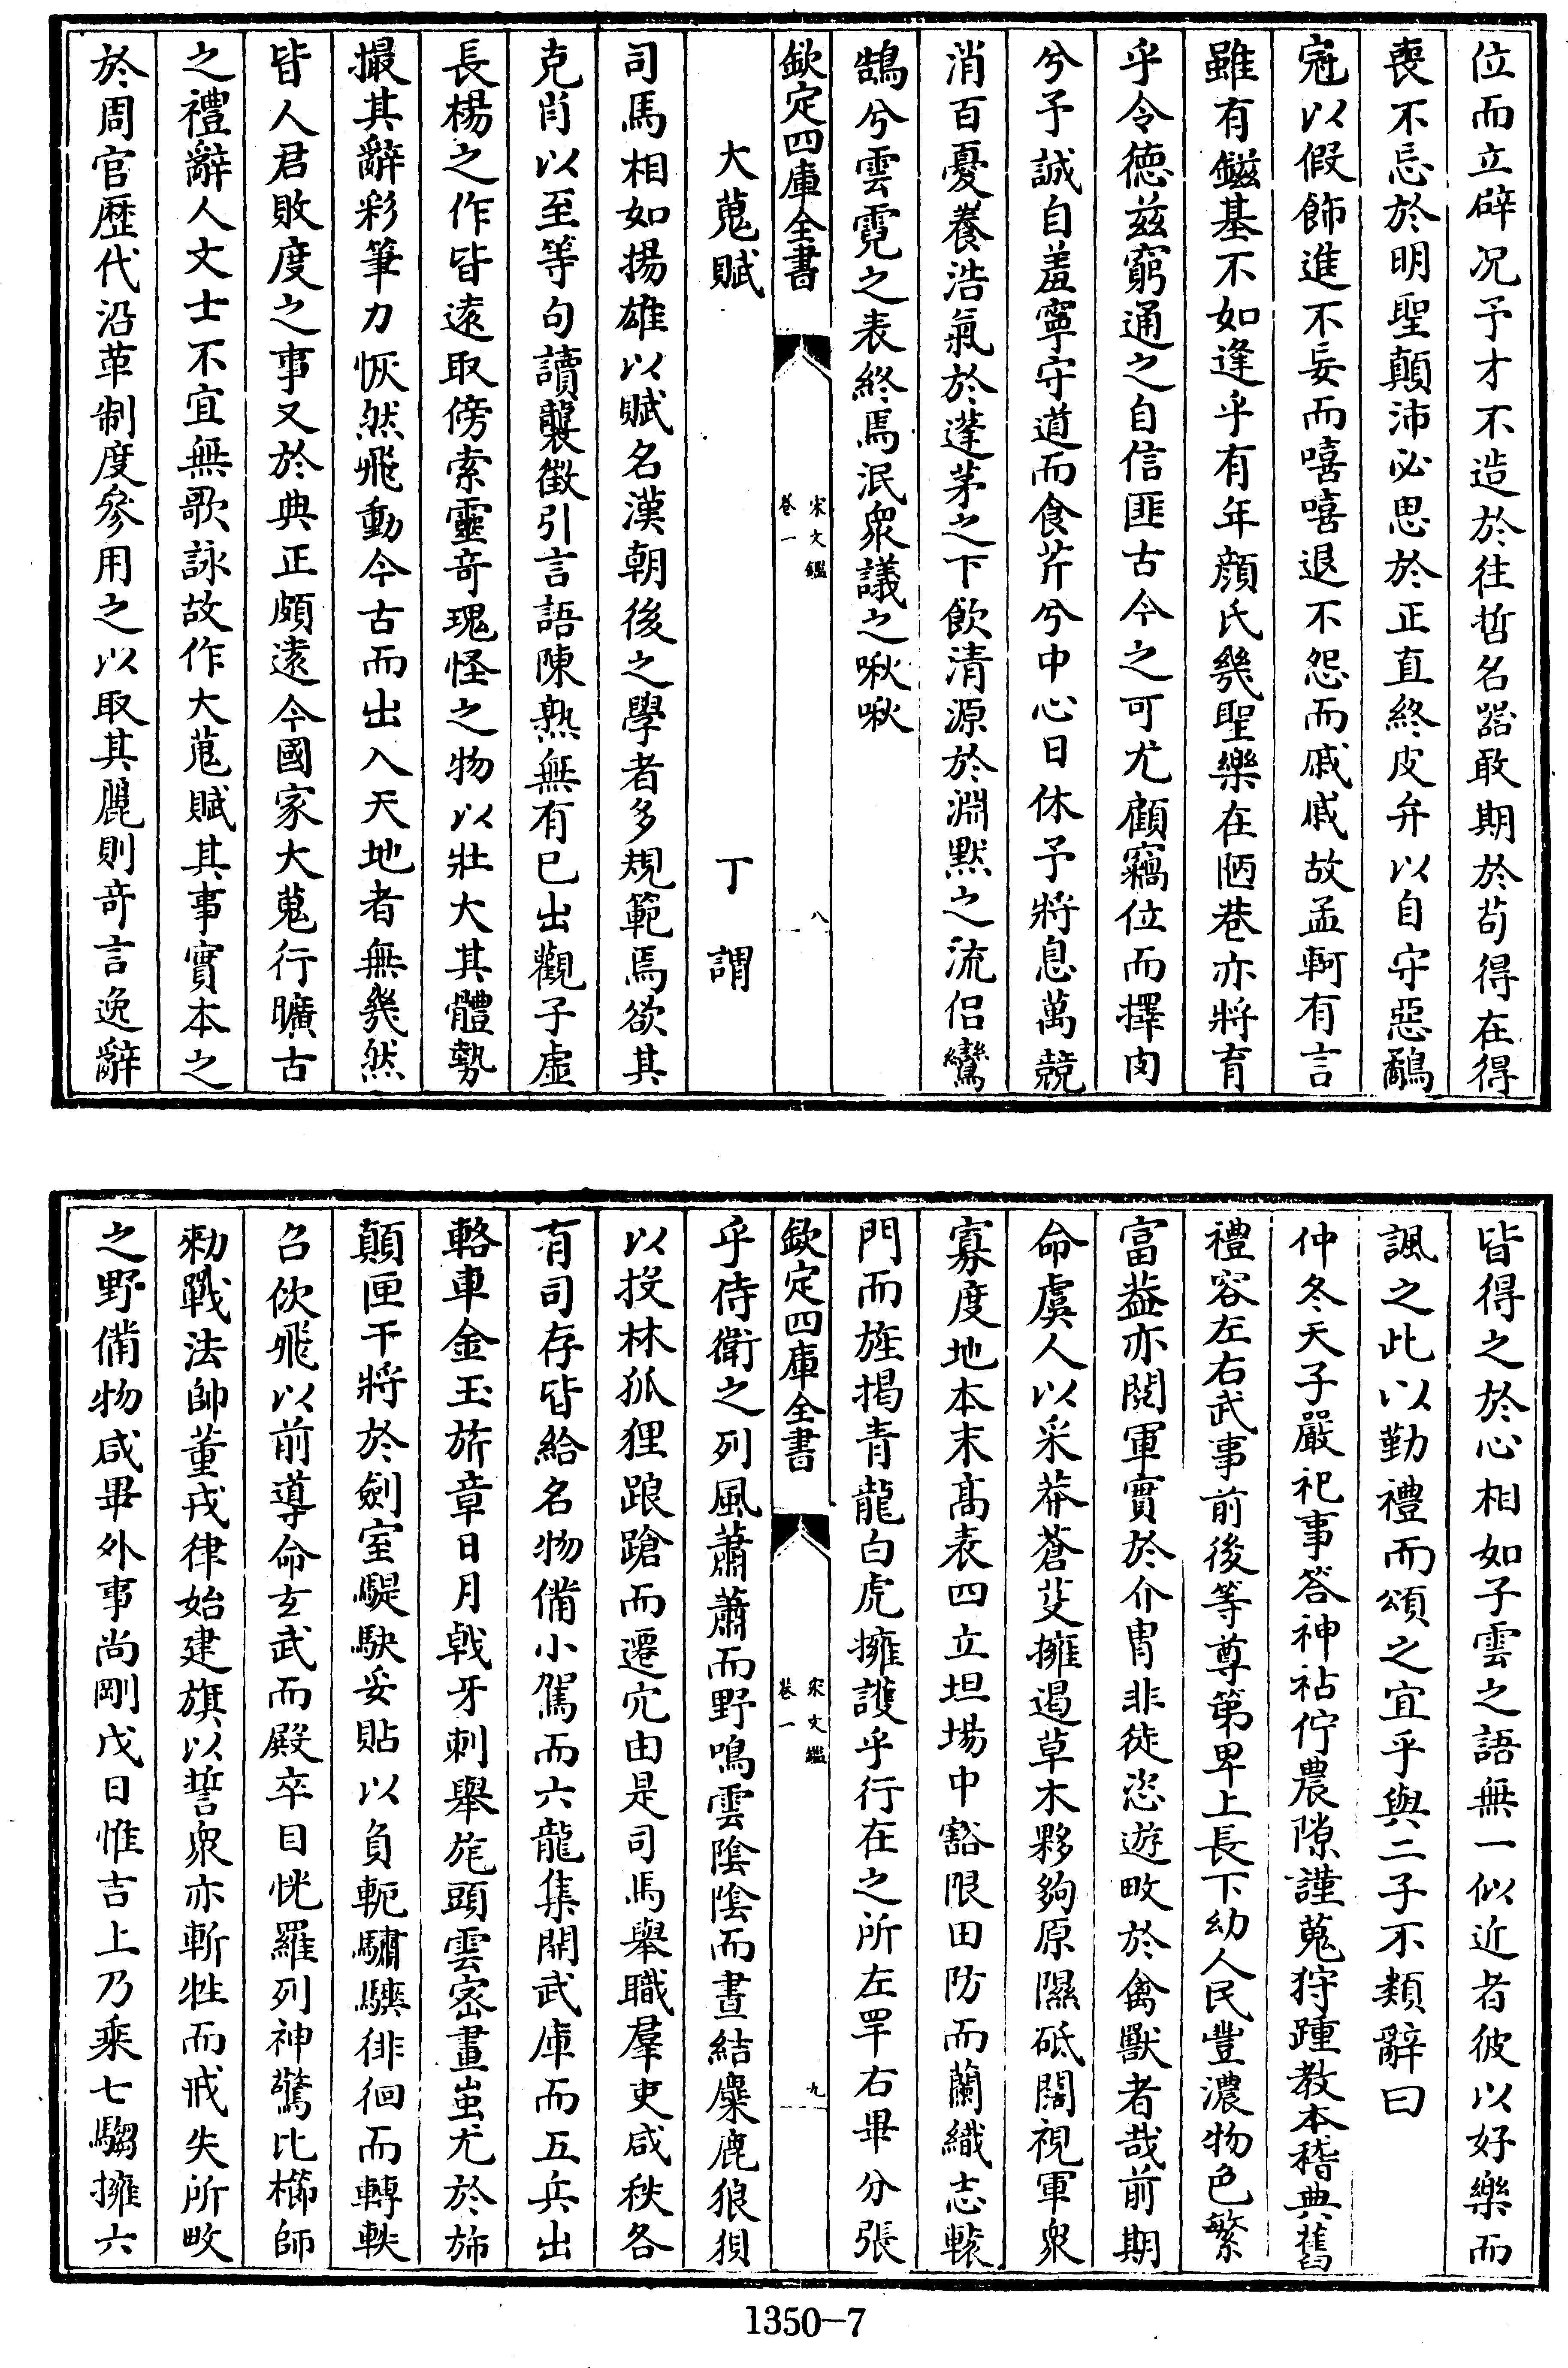 位而立辟况予才不造於往哲名器敢期於苟得在得
喪不忘於明聖顛沛必思於正直終皮弁以自守惡鷸
冠以假飾進不妄而嘻嘻退不怨而戚戚故孟軻有言
雖有鎡基不如逢乎有年顔氏幾聖樂在陋巷亦將育
乎令徳兹窮通之自信匪古今之可尤顧竊位而擇肉
兮予誠自羞寧守道而食芹兮中心日休予將息萬競
消百憂養浩氣於蓬茅之下飲清源於淵黙之流侣鸞
鵠兮雲霓之表終焉泯衆議之啾啾
欽定四庫全書
宋文鑑
卷一
八
大蒐賦
丁謂
司馬相如揚雄以賦名漢朝後之學者多規範焉欲其
克肖以至等句讀襲徵引言語陳熟無有已出觀子虛
長楊之作皆逺取傍索靈竒瑰怪之物以壯大其體勢
撮其辭彩筆力恢然飛動今古而出入天地者無幾然
皆人君敗度之事又於典正頗逺今國家大蒐行曠古
之禮辭人文士不宜無歌詠故作大蒐賦其事實本之
於周官歴代沿革制度參用之以取其麗則竒言逸辭
皆得之於心相如子雲之語無一似近者彼以好樂而
諷之此以勤禮而頌之宜乎與二子不類辭曰
仲冬天子嚴祀事答神祜佇農隙謹蒐狩踵教本稽典舊
禮容左右武事前後等尊第卑上長下幼人民豐濃物色繁
富葢亦閲軍實於介冑非徒恣遊畋於禽獸者哉前期
命虞人以采莽蒼芟擁遏草木夥夠原隰砥闊視軍衆
寡度地本末髙表四立坦塲中豁限田防而蘭織志轅
門而旌揭青龍白虎擁護乎行在之所左罕右畢分張
欽定四庫全書
宋文鑑
卷一
九
乎侍衛之列風蕭蕭而野鳴雲陰陰而晝結麋鹿狼狽
以投林狐狸踉蹌而遷穴由是司馬舉職羣吏咸秩各
有司存皆給名物備小駕而六龍集開武庫而五兵出
輅車金玉旂章日月戟牙刺舉旄頭雲宻畫蚩尤於斾
顛匣干將於劍室騠駃妥貼以負軛驌騻徘徊而轉軼
召佽飛以前導命玄武而殿卒目恍羅列神驚比櫛師
勑戰法帥董戎律始建旗以誓衆亦斬牲而戒失所畋
之野備物咸畢外事尚剛戊日惟吉上乃乘七騶擁六
1350—7